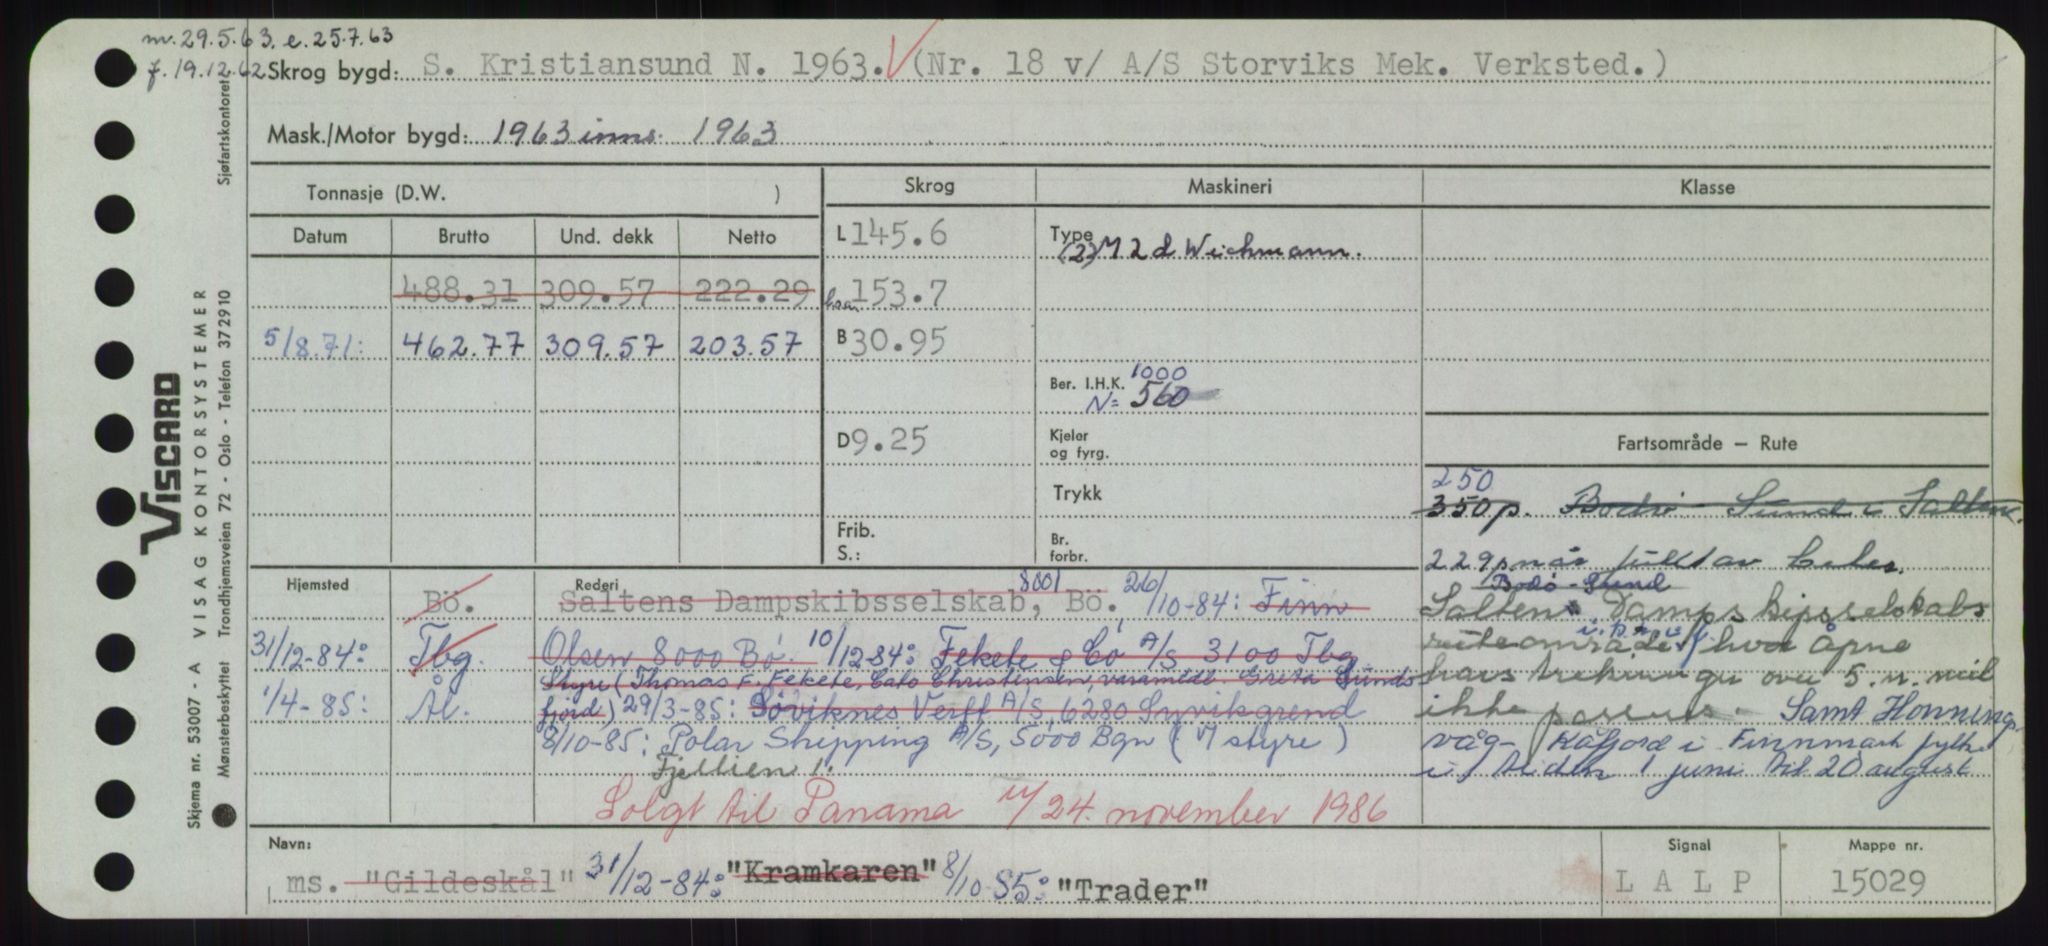 m. 29.5.63. e. 25.7.63
f. 19.12.62
Skrog bygd: S. Kristiansund N. 1963. (Nr. 18 v/ A/S Storviks Mek. Verksted.)
Mask./Motor bygd: 1963 inns. 1963
Tonnasje (D.W. )
Datum Brutto Und. dekk Netto
488.31 309.57 222.29
5/8.71: 462.77 309.57 203.57
Skrog
L 145.6
153.7
B 30.95
D 9.25
Frib.
S.:
Maskineri
Type
(2) M 2 d Wichmann.
Ber. I.H.K. 1000
N= 560
Kjeler
og fyrg.
Trykk
Br.
forbr.
Klasse
Fartsområde – Rute
250
350 p. Bodø - Sund i Salten.
229 p når fullt av
Bodø - Sund
Saltens Dampskipsselskabs
ruteområde hvor åpne
havstrekninger over 5 n. mil
ikke passeres. Samt Honnings-
våg - Kåfjord i Finnmark fylke
i tiden 1 juni til 20 august
Hjemsted
Bö.
31/12-84: Tbg.
1/4-85: Ål.
Rederi
Saltens Dampskibsselskab, 8001 Bö. 26/10-84: Finn
Olsen 8000 Bö. 10/12-84: Fekete & Co A/S 3100 Tbg
Styre (Thomas F. Fekete, Cato Christensen, varamedl. Greta Sunds
fjord) 29/3-85: Søviknes Verft A/S, 6280 Syvikgrend
8/10-85: Polar Shipping A/S, 5000 Bgn ( M styre )
Fjellien 1.
Solgt til Panama 24. november 1986
Navn:
ms. "Gildeskål" 31/12-84: "Kramkaren" 8/10-85: "Trader"
Signal
L A L P
Mappe nr.
15029
Viscard
VISAG KONTORSYSTEMER
Skjema nr. 53007 - A
Sjøfartskontoret
Mønsterbeskyttet Trondhjemsveien 72 - Oslo - Telefon 372910